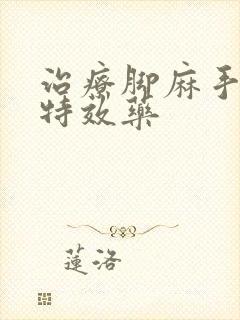 治療腳麻手
特效藥
蓮洛